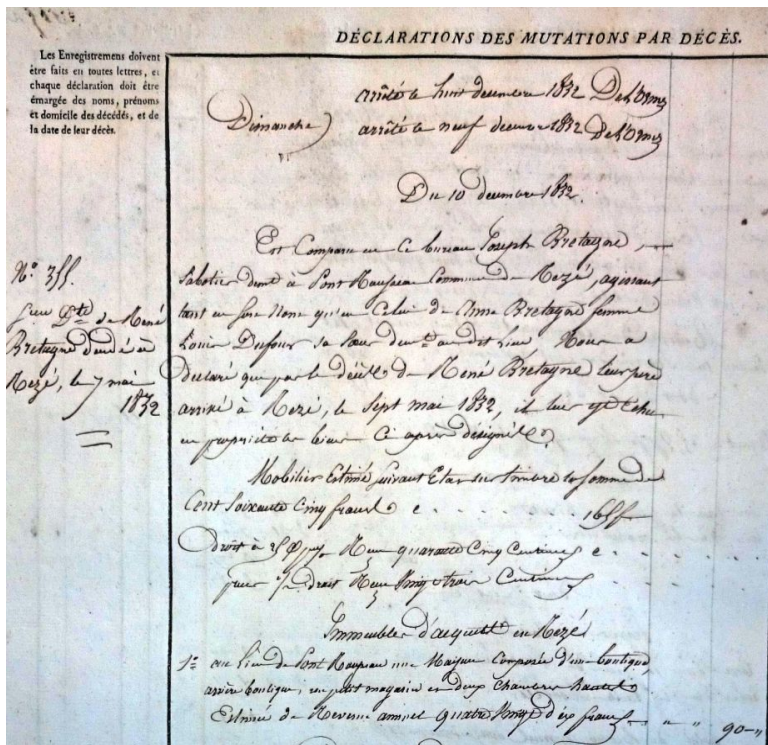 DÉCLARATIONS DES MUTATIONS PAR DÉCÈS.
Les Enregistremens doivent
être faits en toutes lettres, et
chaque déclaration doit être
émargée des noms, prénoms
et domicile des décédés, et de
la date de leur décès.
arrêté le huit decembre 1832 Del'Orme
Dimanche arrêté le neuf decembre 1832 Del'Orme
Du 10 decembre 1832.
N° 355.
René
Bretagne décédé à
Rezé, le 7 mai
1832
Est Comparu en Ce bureau Joseph Bretagne,
Sabotier demt à Pont Rousseau Commune de Rezé, agissant
tant en son Nom qu'en Celui de Anne Bretagne femme
Louis Dufour sa sœur demt au dit Lieu Nous a
Déclaré que par le décès de René Bretagne leur père
arrivé à Rezé, le Sept mai 1832, il leur est Echu
en propriété les biens Ci après désignés.
Mobilier Estimé suivant Etat sur timbre la somme de
Cent Soixante Cinq francs 165 f
Droit à quarante Cinq Centimes
droit vingt trois Centimes
Immeubles d'acquets en Rezé
1° au Lieu de Pont Rousseau une Maison Composée d'une boutique,
arrière boutique, un petit magasin et deux Chambres hautes
Estimée de Revenu annuel quatre vingt dix francs 90 "